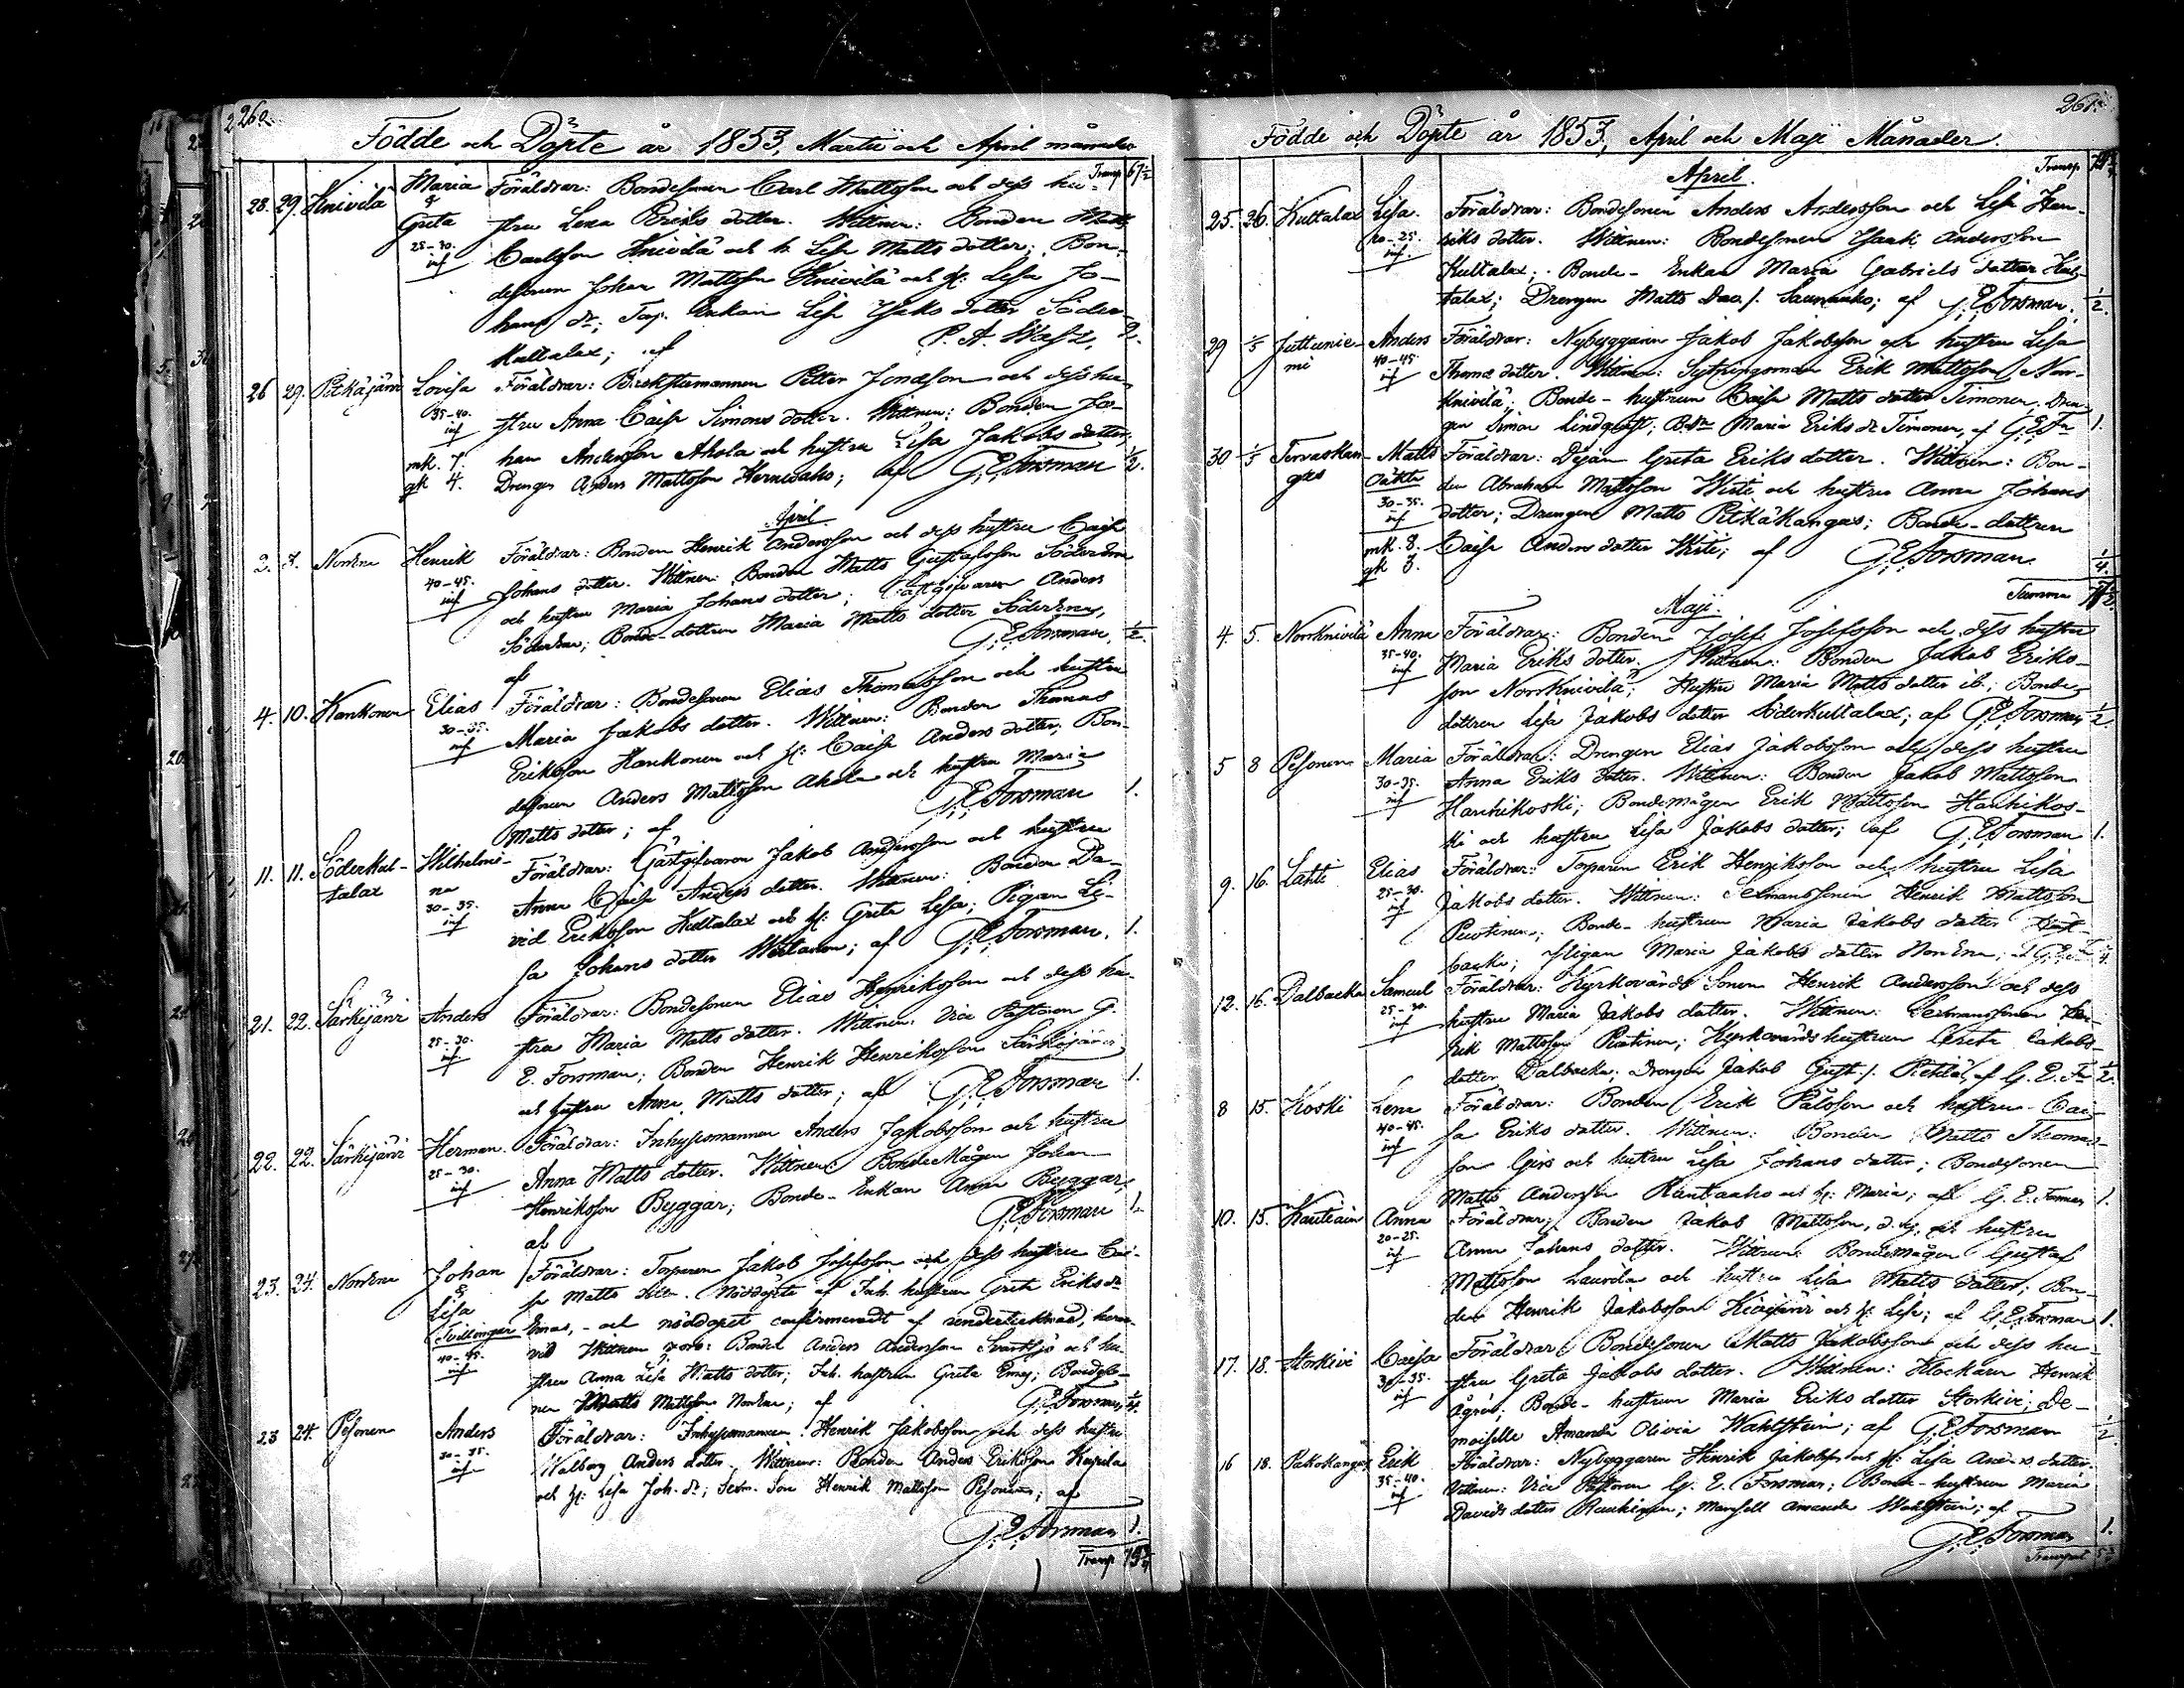 260.
Födde och Döpte år 1853, Martii och April månader
Transp 67½
28. 29. Knivilä Maria Föräldrar: Bondesonen Carl Mattsson och dess hu-
& Greta stru Lena Eriks dotter. Wittnen: Bonden Matts
25-30. Carlsson Knivilä och h. Lisa Matts dotter; Bon-
inf desonen Johan Mattsson Knivilä och H: Lisa Jo-
hans dr; Enkan Lisa Isaks dotter Söder-
kultalax; af P. A. 2.
26 29. Pitkäjärvi Lovisa Föräldrar: Petter Jonasson och dess hu-
35-40. stru Anna Caisa Simons dotter. Wittnen: Bonden Jo-
inf han Andersson Ahola och hustru Lisa Jakobs dotter,
mk. 7. Drengen Anders Mattsson af G. E. Forsman ½.
gk 4.
April
2. 3. Norrena Henrik Föräldrar: Bonden Henrik Andersson och dess hustru Caisa
40-45. Johans dotter. Wittnen: Bonden Matts Gustafsson Söderena
inf och hustru Maria Johans dotter; Gästgifvaren Anders
Söderena; Bonde-dottren Maria Matts dotter Söderena,
af G. E. Forsman. ½.
4. 10. Kankonen Elias Föräldrar: Bondesonen Elias Thomasson och hustru
30-35. Maria Jakobs dotter. Wittnen: Bonden Thomas
inf Eriksson Kankonen och H: Caisa Anders dotter, Bon-
desonen Anders Mattsson Ahola och hustru Maria
Matts dotter; af G. E. Forsman 1.
11. 11. Söderkul- Wilhelmi- Föräldrar: Gästgifvaren Jakob Andersson och hustru
talax na Anna Caisa Anders dotter. Wittnen: Bonden Da-
30-35. vid Eriksson Kultalax och H: Greta Lisa; Pigan Li-
inf sa Johans dotter af G. E. Forsman. 1.
21. 22. Särkijärvi Anders Föräldrar: Bondesonen Elias Henriksson och dess hu-
25-30. stru Maria Matts dotter. Wittnen: Vice Pastoren G.
inf E. Forsman; Bonden Henrik Henriksson Särkijärvi
och hustru Anna Matts dotter; af G. E. Forsman 1.
22. 22. Särkijärvi Herman. Föräldrar: Inhysesmannen Anders Jakobsson och hustru
25-30. Anna Matts dotter. Wittnen: BondeMågen Johan
inf Henriksson Byggar; Bonde-Enkan Anna Byggar;
af G. E. Forsman 1.
23. 24. Norrena Johan Föräldrar: Torparen Jakob Josefsson och dess hustru Cai-
& Lisa sa Matts dotter. Nöddöpte af Inh. hustrun Greta Eriks dr
Tvillingar Emas, - och nöddopet confirmeradt af undertecknad, hvar-
40-45. vid Wittnen voro: Bonden Anders Andersson Svartsjö och hu-
inf stru Anna Lisa Matts dotter; Inh. hustrun Greta Emas; Bondeso-
nen Matts Mattsson Norrena; af G. E. Forsman ¼.
23 24. Pesonen Anders Föräldrar: Inhysesmannen Henrik Jakobsson och dess hustru
30-35. Walborg Anders dotter. Wittnen: Bonden Anders Eriksson
inf och H: Lisa Joh. dr; Sexm. Son Henrik Mattsson Pesonen; af
G. E. Forsman 1.
Transp 75¾
261.
Födde och Döpte år 1853, April och Maji Månader.
Transp. 75¾
April.
25. 26. Kultalax Lisa. Föräldrar: Bondesonen Anders Andersson och Lisa Hen-
20-25. riks dotter. Wittnen: Bondesonen Isaak Andersson
inf. Kultalax; Bonde-Enkan Maria Gabriels dotter Kul-
talax; Drengen Matts Dav. s. Saunaaho; af G. E. Forsman. ½.
29 1/5 Juttunie- Anders Föräldrar: Nybyggaren Jakob Jakobsson och hustru Lisa
mi 40-45. Thomæ dotter. Wittnen: Sytningsman Erik Mattsson Norr-
inf Knivilä; Bonde-hustrun Caisa Matts dotter Timonen; Dren-
gen Simon Lindqvist; B.dr Maria Eriks dr Timonen, af G. E. Fn 1.
30 1/5 Tervaskan- Matts Föräldrar: Dejan Greta Eriks dotter. Wittnen: Bon-
gas Oäkta den Abraham Mattsson Wirta och hustru Anna Johans
30-35. dotter; Drengen Matts Pitkäkangas; Bonde-dottren
inf Caisa Anders dotter af G. E. Forsman ¼.
mk. 8.
gk 3.
Summa
Maji.
4. 5. NorrKnivilä Anna Föräldrar: Bonden Josef Josefsson och dess hustru
35-40. Maria Eriks dotter. Wittnen: Bonden Jakob Eriks-
inf son NorrKnivilä; Hustru Maria Matts dotter ib.; Bonde-
dottren Lisa Jakobs dotter Söderkultalax; af G. E. Forsman ½
5 8 Pesonen Maria Föräldrar: Drengen Elias Jakobsson och dess hustru
30-35. Anna Eriks dotter. Wittnen: Bonden Jakob Mattsson
inf Hanhikoski; Bondemågen Erik Mattsson Hanhikos-
ki och hustru Lisa Jakobs dotter; af G. E. Forsman 1.
9. 16. Lahti Elias Föräldrar: Torparen Erik Henriksson och hustru Lisa
25-30. Jakobs dotter. Wittnen: Sexmanssonen Henrik Mattsson
inf Bonde-hustrun Maria Jakobs dotter
backa; Pigan Maria Jakobs dotter Norrena; af G. E. F. ¼.
12. 16. Dalbacka Samuel Föräldrar: Kyrkovärds Sonen Henrik Andersson och dess
25-30. hustru Maria Jakobs dotter. Wittnen: Sexmanssonen Hen-
inf rik Mattsson Kyrkovärdshustrun Greta Jakobs-
dotter Dalbacka; Drengen Jakob Gust. s. af G. E. Fn ½.
8 15. Koski Lena Föräldrar: Bonden Erik Pålsson och hustru Cai-
40-45. sa Eriks dotter. Wittnen: Bonden Matts Thomas-
inf son Girs och hustru Lisa Johans dotter; Bondesonen
Matts Andersson Rantaaho och H: Maria; af G. E. Forsman 1.
10. 15. Anna Föräldrar: Bonden Jakob Mattsson, d. y. och hustru
20-25. Anna Johans dotter. Wittnen: Bondemågen Gustaf
inf Mattsson Laurila och hustru Lisa Matts dotter; Bon-
den Henrik Jakobsson och H: Lisa; af G. E. Forsman 1.
17. 18. Storkivi Caisa Föräldrar: Bondesonen Matts Jakobsson och dess hu-
30-35. stru Greta Jakobs dotter. Wittnen: Klockaren Henrik
inf Ågren; Bonde-hustrun Maria Eriks dotter Storkivi; De-
moiselle Amanda Olivia Wahlstein; af G. E. Forsman ½.
16 18. Pakkakangas Erik Föräldrar: Nybyggaren Henrik Jakobss. och H: Lisa Anders dotter.
35-40. Wittnen: Vice Pastoren G. E. Forsman; Bonde-hustrun Maria
inf Davids dotter Mamsell Amanda Wahlstein; af
G. E. Forsman 1.
Transport 5¾